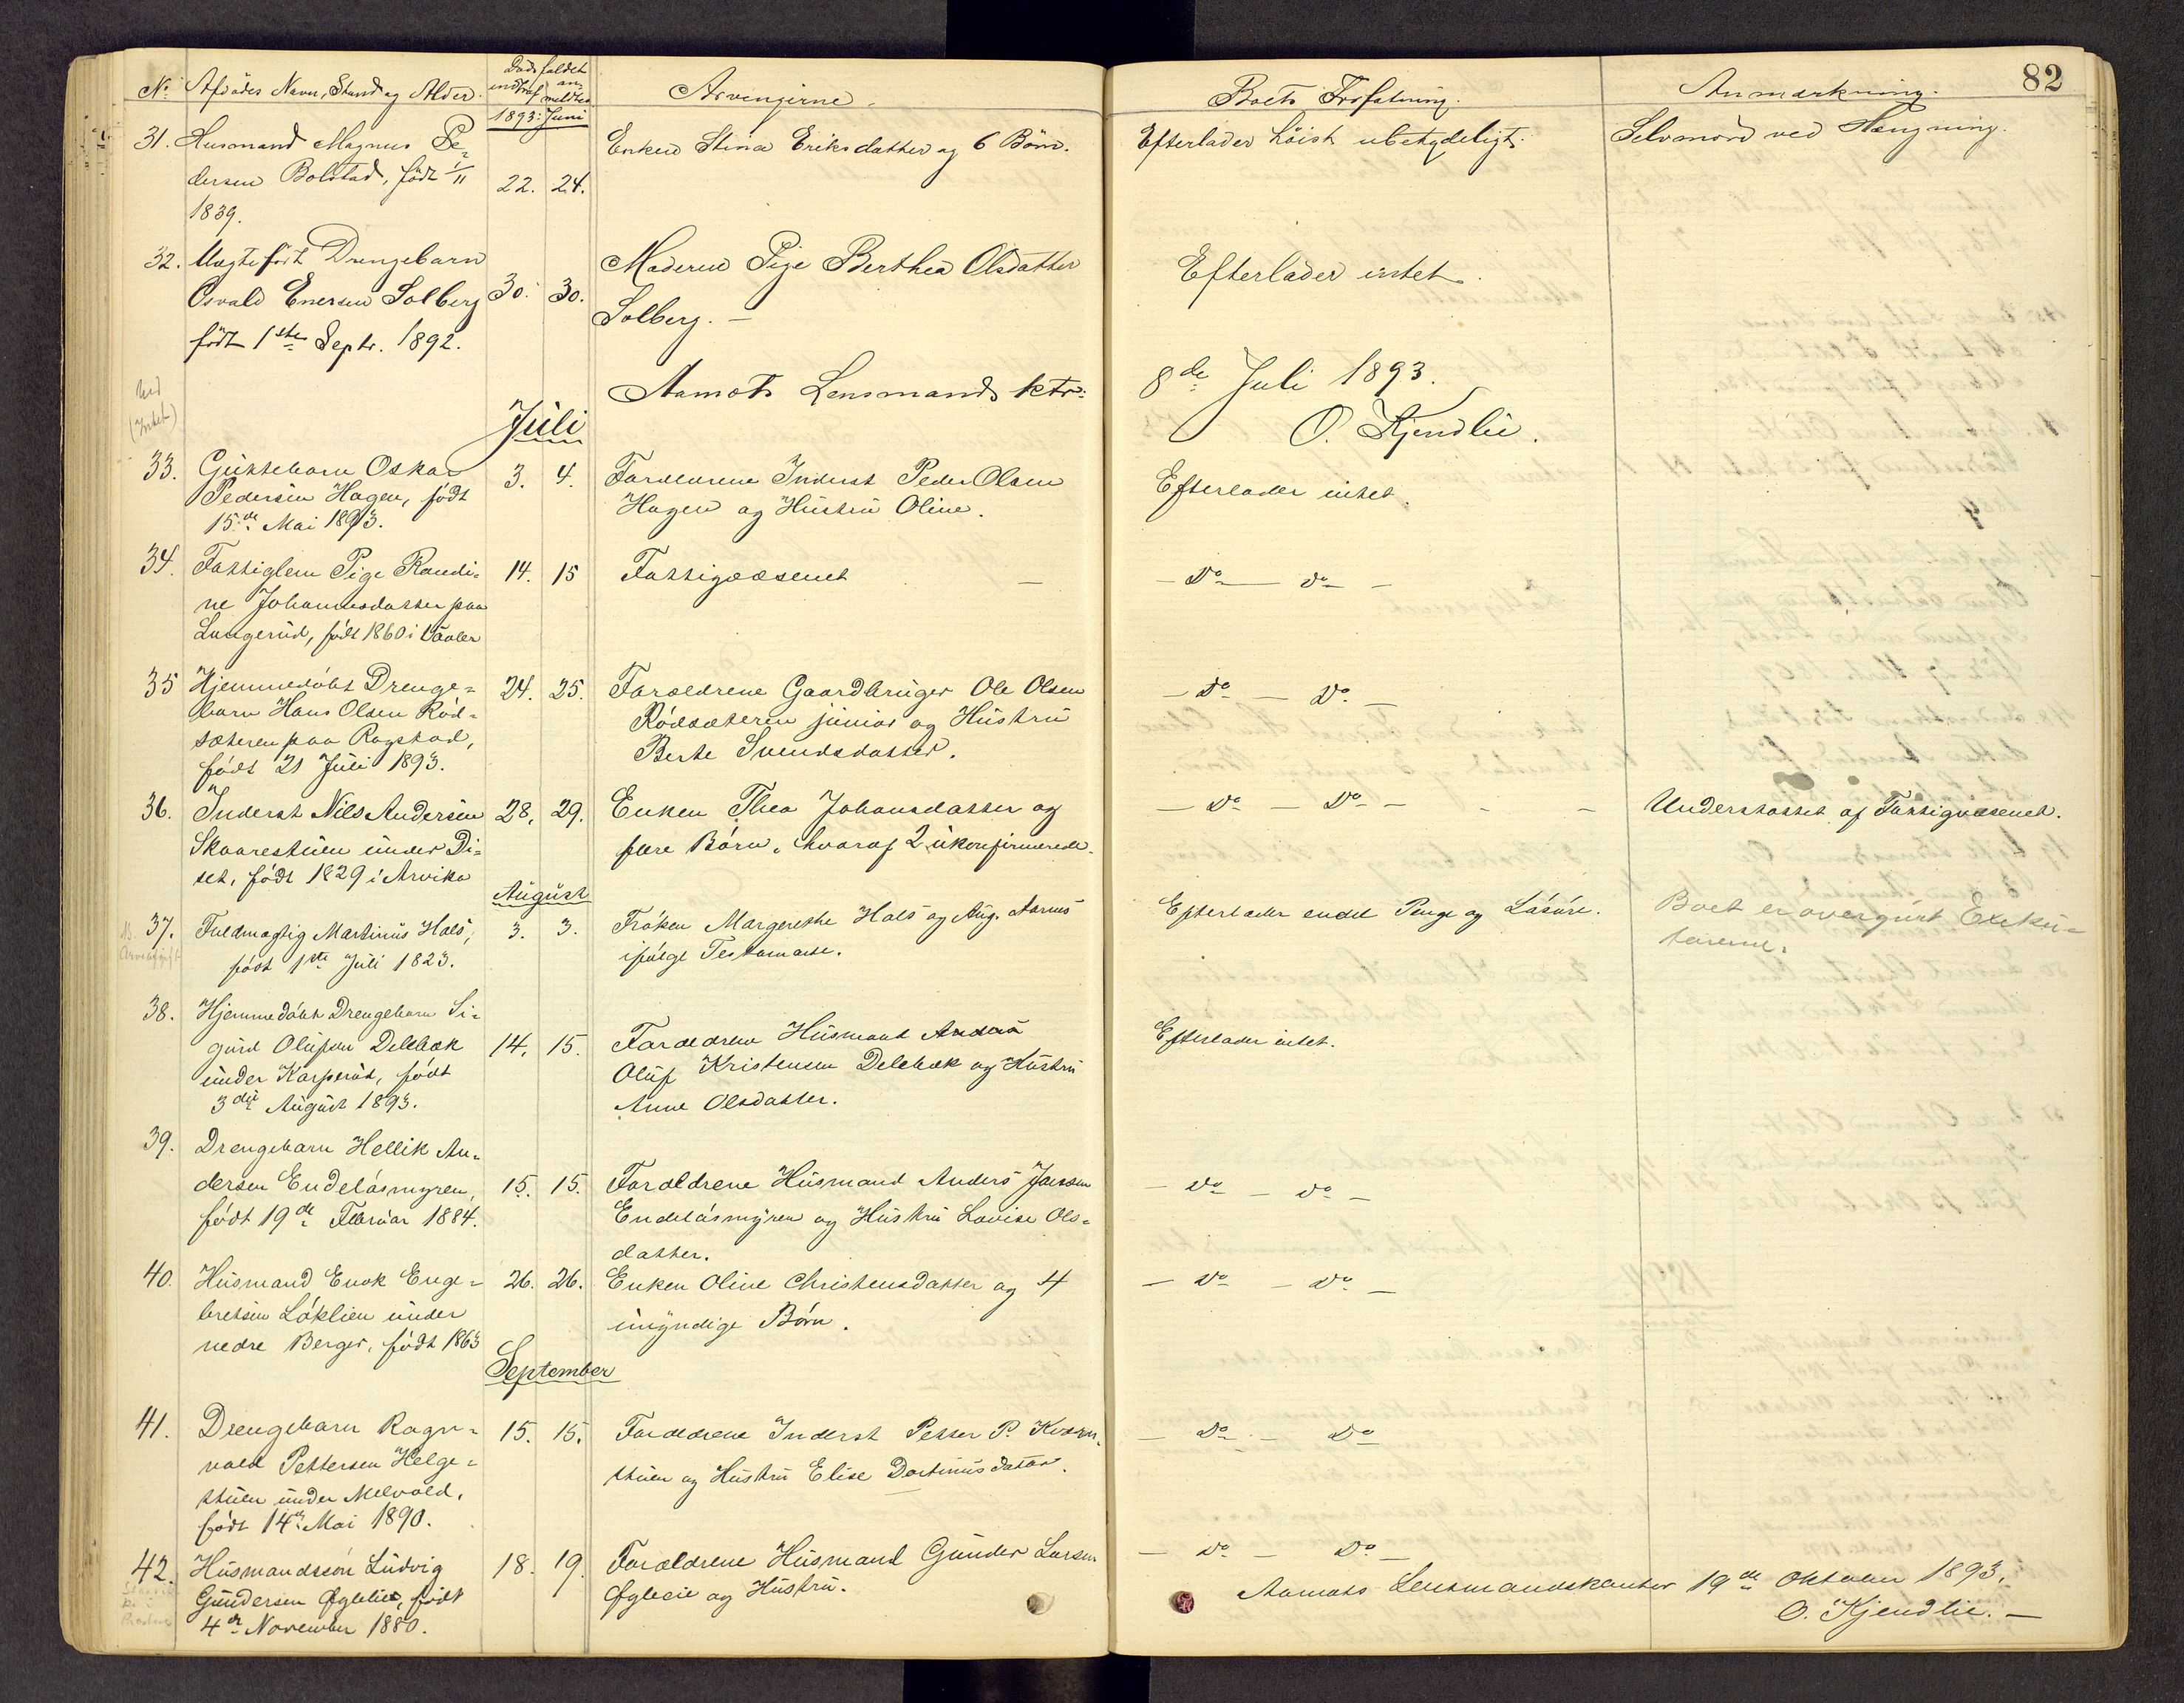 82
No. Afdödes Navn, Stand og Alder. Dödsfaldet indtraf anmeldtes Arvingerne. Boets Forfatning. Anmærkning.
1893: Juni
31. Husmand Magnus Pe- Enken Stina Eriksdatter og 6 Börn. Efterlader höist ubetydeligt. Selvmord ved Hængning.
dersen Bolstad, födt 1/11 22. 24.
1839.
32. Uægtefödt Drengebarn Moderen Pige Berthea Olsdatter Efterlader intet.
Osvald Enersen Solberg 30. 30. Solberg. —
födt 1ste Septr. 1892.
Aamots Lensmandsktr. 8de Juli 1893.
(Intet)
Juli O. Kjendlie.
33. Guttebarn Oskar 3. 4. Forældrene Inderst Peder Olsen Efterlader intet.
Pedersen Hagen, født Hagen og Hustru Oline.
15de Mai 1893.
34. Fattiglem Pige Randi- 14. 15 Fattigvæsenet — — Do — do —
ne Johannesdatter paa
Lungerud, født 1860 i Vaaler
35 Hjemmedøbt Drenge- 24. 25. Forældrene Gaardbruger Ole Olsen — Do — Do. —
barn Hans Olsen Rød- Rødsæteren junior og Hustru
sæteren paa Rogstad, Berte Svendsdatter.
født 21 Juli 1893.
36. Inderst Nils Andersen 28. 29. Enken Thea Johansdatter og — Do — Do — Understøttet af Fattigvæsenet.
Skaarestuen under Di- flere Børn, hvoraf 2 ukonfirmerede.
set, født 1829 i Arvika
August
37. Fuldmægtig Martinus Hals, 3. 3. Frøken Margrethe Hals og Aug. Aarnes Efterlader endel Penge og Løsøre. Boet er overgivet Exeku-
Arveafgift født 1ste Juli 1823. ifølge Testamente. torerne.
38. Hjemmedøbt Drengebarn Si-
gurd Olufsen Delebæk 14. 15. Forældrene Husmand Efterlader intet.
under Karperud, født Oluf Kristensen Delebæk og Hustru
3die August 1893. Anne Olsdatter.
39. Drengebarn Hellik An-
dersen Endeløsmyren, 15. 15. Forældrene Husmand Anders Jonsen — Do — do —
født 19de Februar 1884. Endeløsmyren og Hustru Lovise Ols-
datter.
40. Husmand Enok Enge- 26. 26. Enken Oline Christensdatter og 4 — Do — Do. —
bretsen Løklien under umyndige Børn.
nedre Berger, født 1863
September
41. Drengebarn Ragn- 15. 15. Forældrene Inderst Petter P. — Do — Do
vald Pettersen Helge- stuen og Hustru Elise Dortinusdatter.
stuen under Melvold,
født 14de Mai 1890.
42. Husmandssøn Ludvig 18. 19. Forældrene Husmand Gunder Larsen — Do — Do —
Gundersen Øglelie, født Øgleie og Hustru. Aamots Lensmandskontor 19de Oktober 1893.
4de November 1880. O. Kjendlie. —